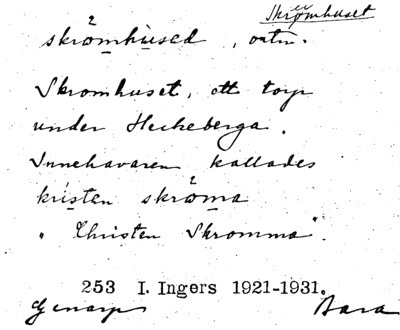 Skrömhuset
skrömhused, ortn.
Skromhuset, ett torp
under Heckeberga.
Innehavaren kallades
kristen skröma
"Christen Skromma".
253 I. Ingers 1921-1931.
Genarp Bara